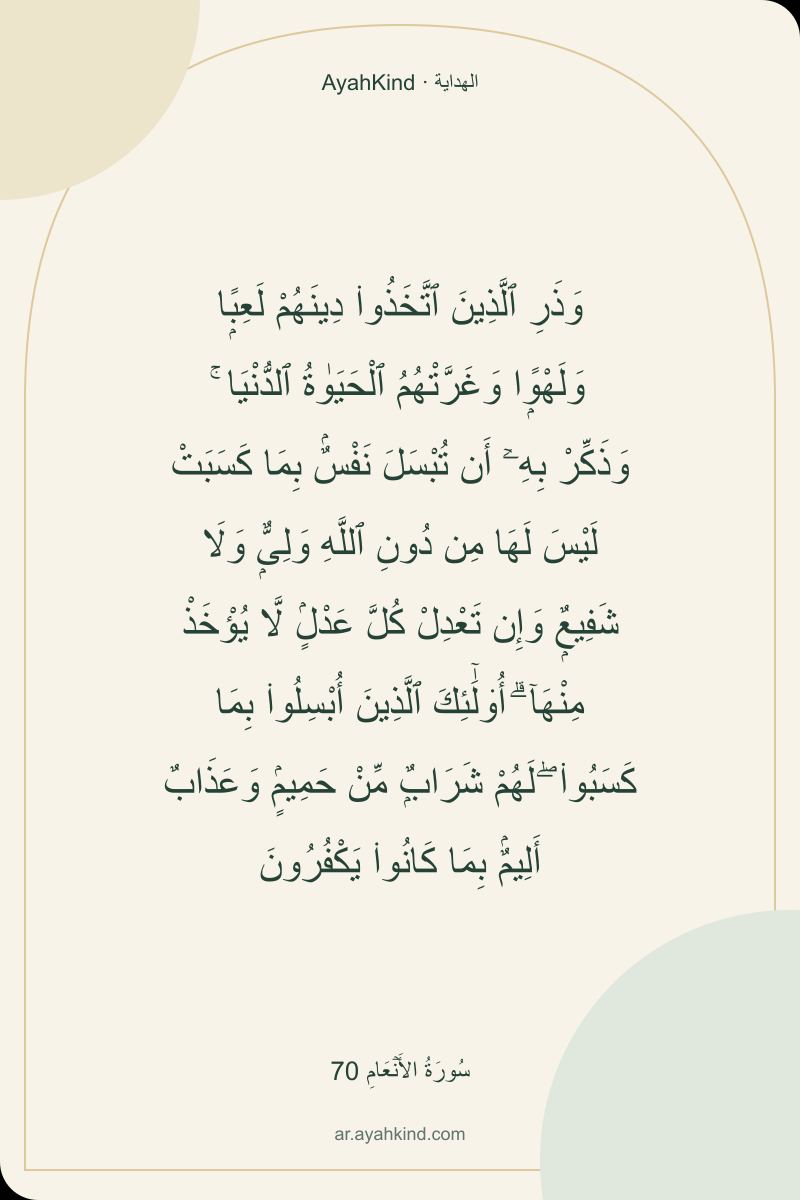 AyahKind · الهداية
وَذَرِ ٱلَّذِينَ ٱتَّخَذُوا۟ دِينَهُمْ لَعِبًۭا
وَلَهْوًۭا وَغَرَّتْهُمُ ٱلْحَيَوٰةُ ٱلدُّنْيَا ۚ
وَذَكِّرْ بِهِۦٓ أَن تُبْسَلَ نَفْسٌۢ بِمَا كَسَبَتْ
لَيْسَ لَهَا مِن دُونِ ٱللَّهِ وَلِىٌّۭ وَلَا
شَفِيعٌۭ وَإِن تَعْدِلْ كُلَّ عَدْلٍۢ لَّا يُؤْخَذْ
مِنْهَآ ۗ أُو۟لَٰٓئِكَ ٱلَّذِينَ أُبْسِلُوا۟ بِمَا
كَسَبُوا۟ ۖ لَهُمْ شَرَابٌۭ مِّنْ حَمِيمٍۢ وَعَذَابٌ
أَلِيمٌۢ بِمَا كَانُوا۟ يَكْفُرُونَ
سُورَةُ الأَنۡعَامِ 70
ar.ayahkind.com